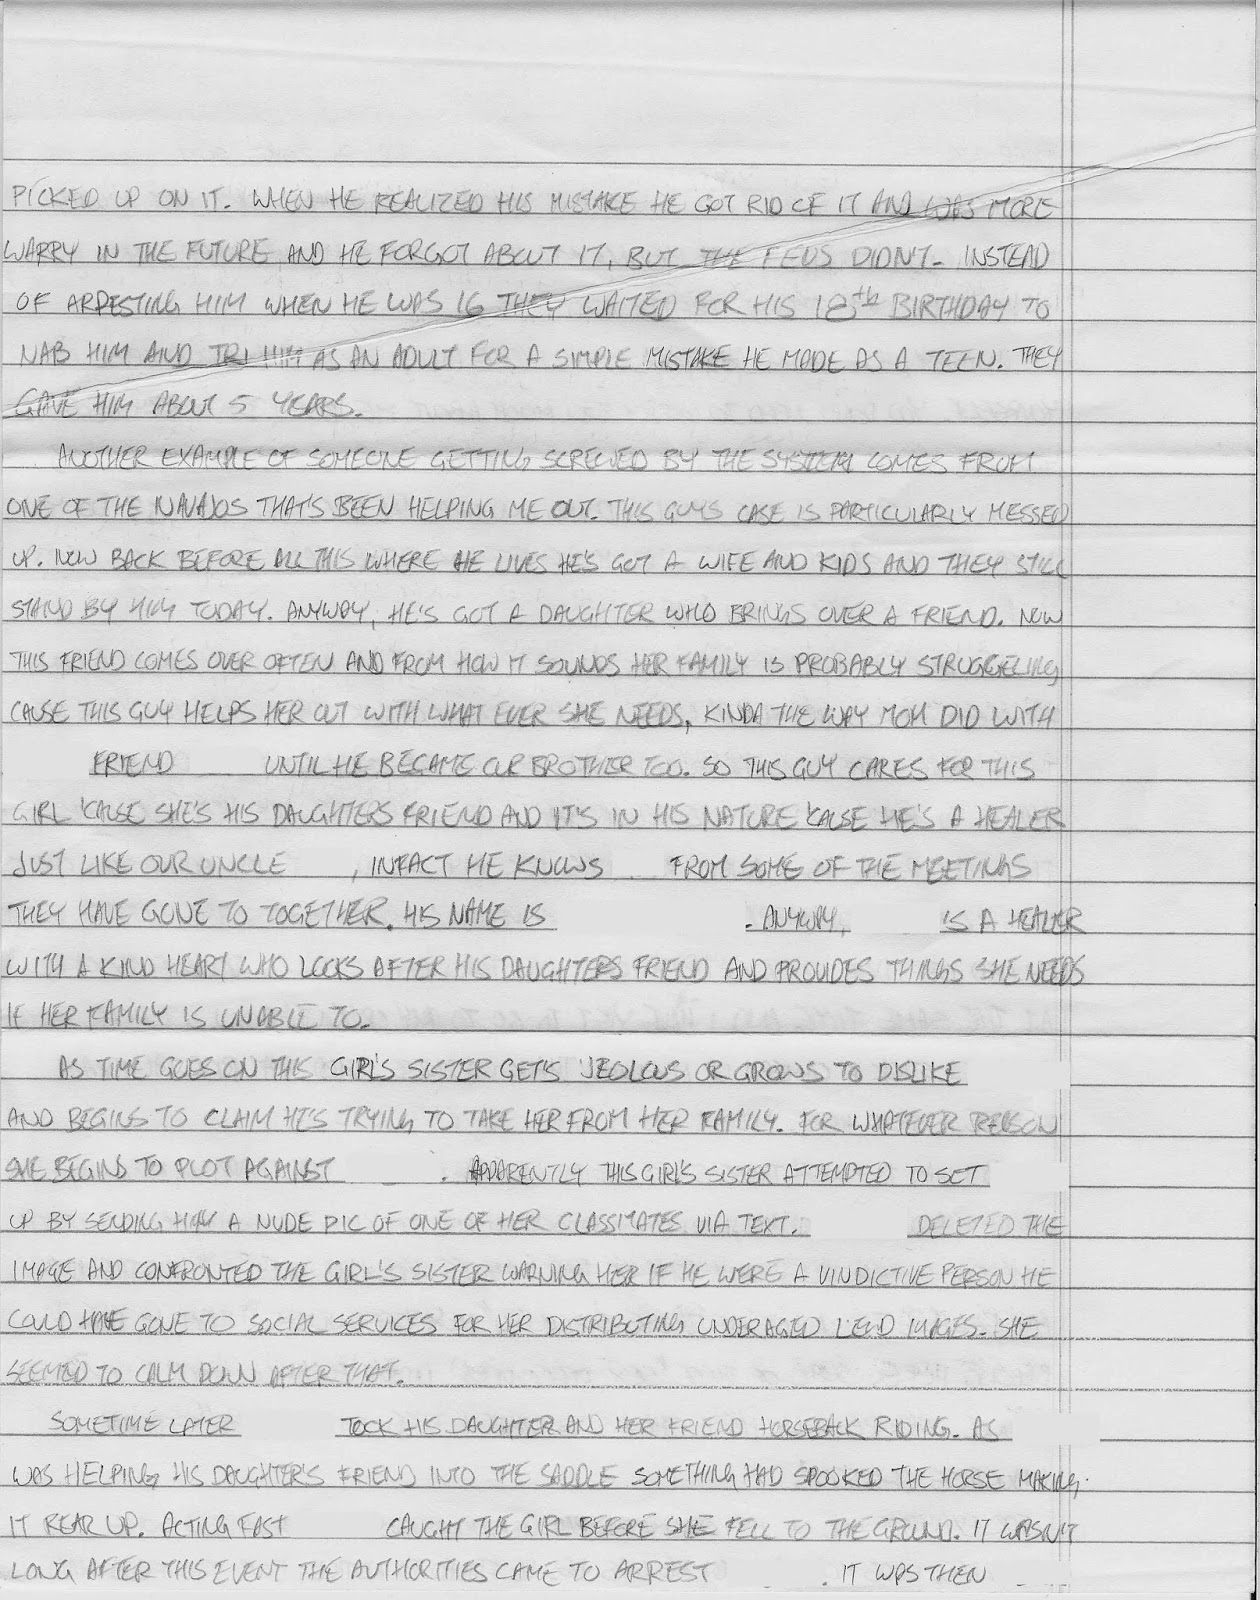 PICKED UP ON IT. WHEN HE REALIZED HIS MISTAKE HE GOT RID OF IT AND WAS MORE
WARRY IN THE FUTURE AND HE FORGOT ABOUT IT, BUT THE FEDS DIDN'T. INSTEAD
OF ARRESTING HIM WHEN HE WAS 16 THEY WAITED FOR HIS 18th BIRTHDAY TO
NAB HIM AND TRI HIM AS AN ADULT FOR A SIMPLE MISTAKE HE MADE AS A TEEN. THEY
GAVE HIM ABOUT 5 YEARS.
ANOTHER EXAMPLE OF SOMEONE GETTING SCREWED BY THE SYSTEM COMES FROM
ONE OF THE NAVAJOS THAT'S BEEN HELPING ME OUT. THIS GUYS CASE IS PARTICULARLY MESSED
UP. NOW BACK BEFORE ALL THIS WHERE HE LIVES HE'S GOT A WIFE AND KIDS AND THEY STILL
STAND BY HIM TODAY. ANYWAY, HE'S GOT A DAUGHTER WHO BRINGS OVER A FRIEND. NOW
THIS FRIEND COMES OVER OFTEN AND FROM HOW IT SOUNDS HER FAMILY IS PROBABLY STRUGGELING
CAUSE THIS GUY HELPS HER OUT WITH WHAT EVER SHE NEEDS, KINDA THE WAY MOM DID WITH
FRIEND UNTIL HE BECAME OUR BROTHER TOO. SO THIS GUY CARES FOR THIS
GIRL 'CAUSE SHE'S HIS DAUGHTERS FRIEND AND IT'S IN HIS NATURE 'CAUSE HE'S A HEALER
JUST LIKE OUR UNCLE , INFACT HE KNOWS FROM SOME OF THE MEETINGS
THEY HAVE GONE TO TOGETHER. HIS NAME IS . ANYWAY, IS A HEALER
WITH A KIND HEART WHO LOOKS AFTER HIS DAUGHTERS FRIEND AND PROVIDES THINGS SHE NEEDS
IF HER FAMILY IS UNABLE TO.
AS TIME GOES ON THIS GIRL'S SISTER GETS JEOLOUS OR GROWS TO DISLIKE
AND BEGINS TO CLAIM HE'S TRYING TO TAKE HER FROM HER FAMILY. FOR WHATEVER REASON
SHE BEGINS TO PLOT AGAINST . APPARENTLY THIS GIRL'S SISTER ATTEMPTED TO SET
UP BY SENDING HIM A NUDE PIC OF ONE OF HER CLASSMATES VIA TEXT. DELETED THE
IMAGE AND CONFRONTED THE GIRL'S SISTER WARNING HER IF HE WERE A VINDICTIVE PERSON HE
COULD HAVE GONE TO SOCIAL SERVICES FOR HER DISTRIBUTING UNDERAGED LEWD IMAGES. SHE
SEEMED TO CALM DOWN AFTER THAT.
SOMETIME LATER TOOK HIS DAUGHTER AND HER FRIEND HORSEBACK RIDING. AS
WAS HELPING HIS DAUGHTER'S FRIEND INTO THE SADDLE SOMETHING HAD SPOOKED THE HORSE MAKING
IT REAR UP. ACTING FAST CAUGHT THE GIRL BEFORE SHE FELL TO THE GROUND. IT WASN'T
LONG AFTER THIS EVENT THE AUTHORITIES CAME TO ARREST . IT WAS THEN